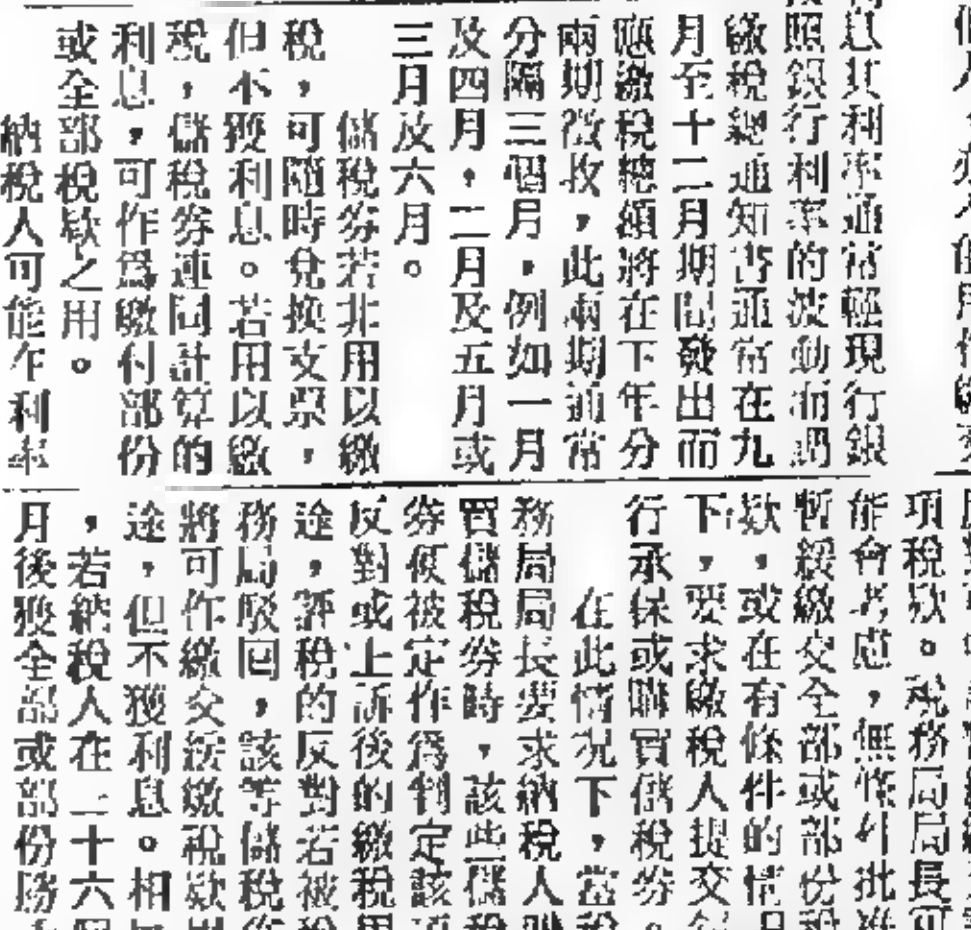 息其利率通常較現行銀
按照銀行利率的波動而調
繳稅總通知書通常在九
月至十二月期間發出而
應繳稅總額將在下年分
兩期徵收，此兩期通常
分隔三個月，例如一月
及四月，二月及五月或
三月及六月。
儲稅券若非用以繳
稅，可隨時兌換支票，
但不獲利息。若用以繳
稅，儲稅券連同計算的
利息，可作爲繳付部份
或全部稅欵之用。
納稅人可能在利率
項稅欵。稅務局局長可
能會考慮，無條件批准
暫緩繳交全部或部份稅
欵，或在有條件的情
下，要求繳稅人提交
行承保或購買儲稅券。
在此情況下，當稅
務局局長要求納稅人
買儲稅券時，該些儲稅
券便被定作爲判定該項
反對或上訴後的繳稅用
途，評稅的反對若被稅
務局駁回，該等儲稅
將可作繳交緩繳稅欵用
途，但不獲利息。相
，若納稅人在二十六個
月後獲全部或部份勝